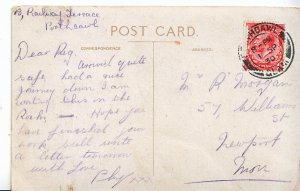 B, Railway Terrace
Porthcawl
POST CARD
CORRESPONDENCE
ADDRESS
Dear Reg,
Arrived quite
safe, had a nice
journey down I am
writing this on the
Rocks — Hope you
have finished your
work, will write
a letter tomorrow
with Love
Phyl xx
Mr R Morgan
57, Williams
St
Newport
Mon